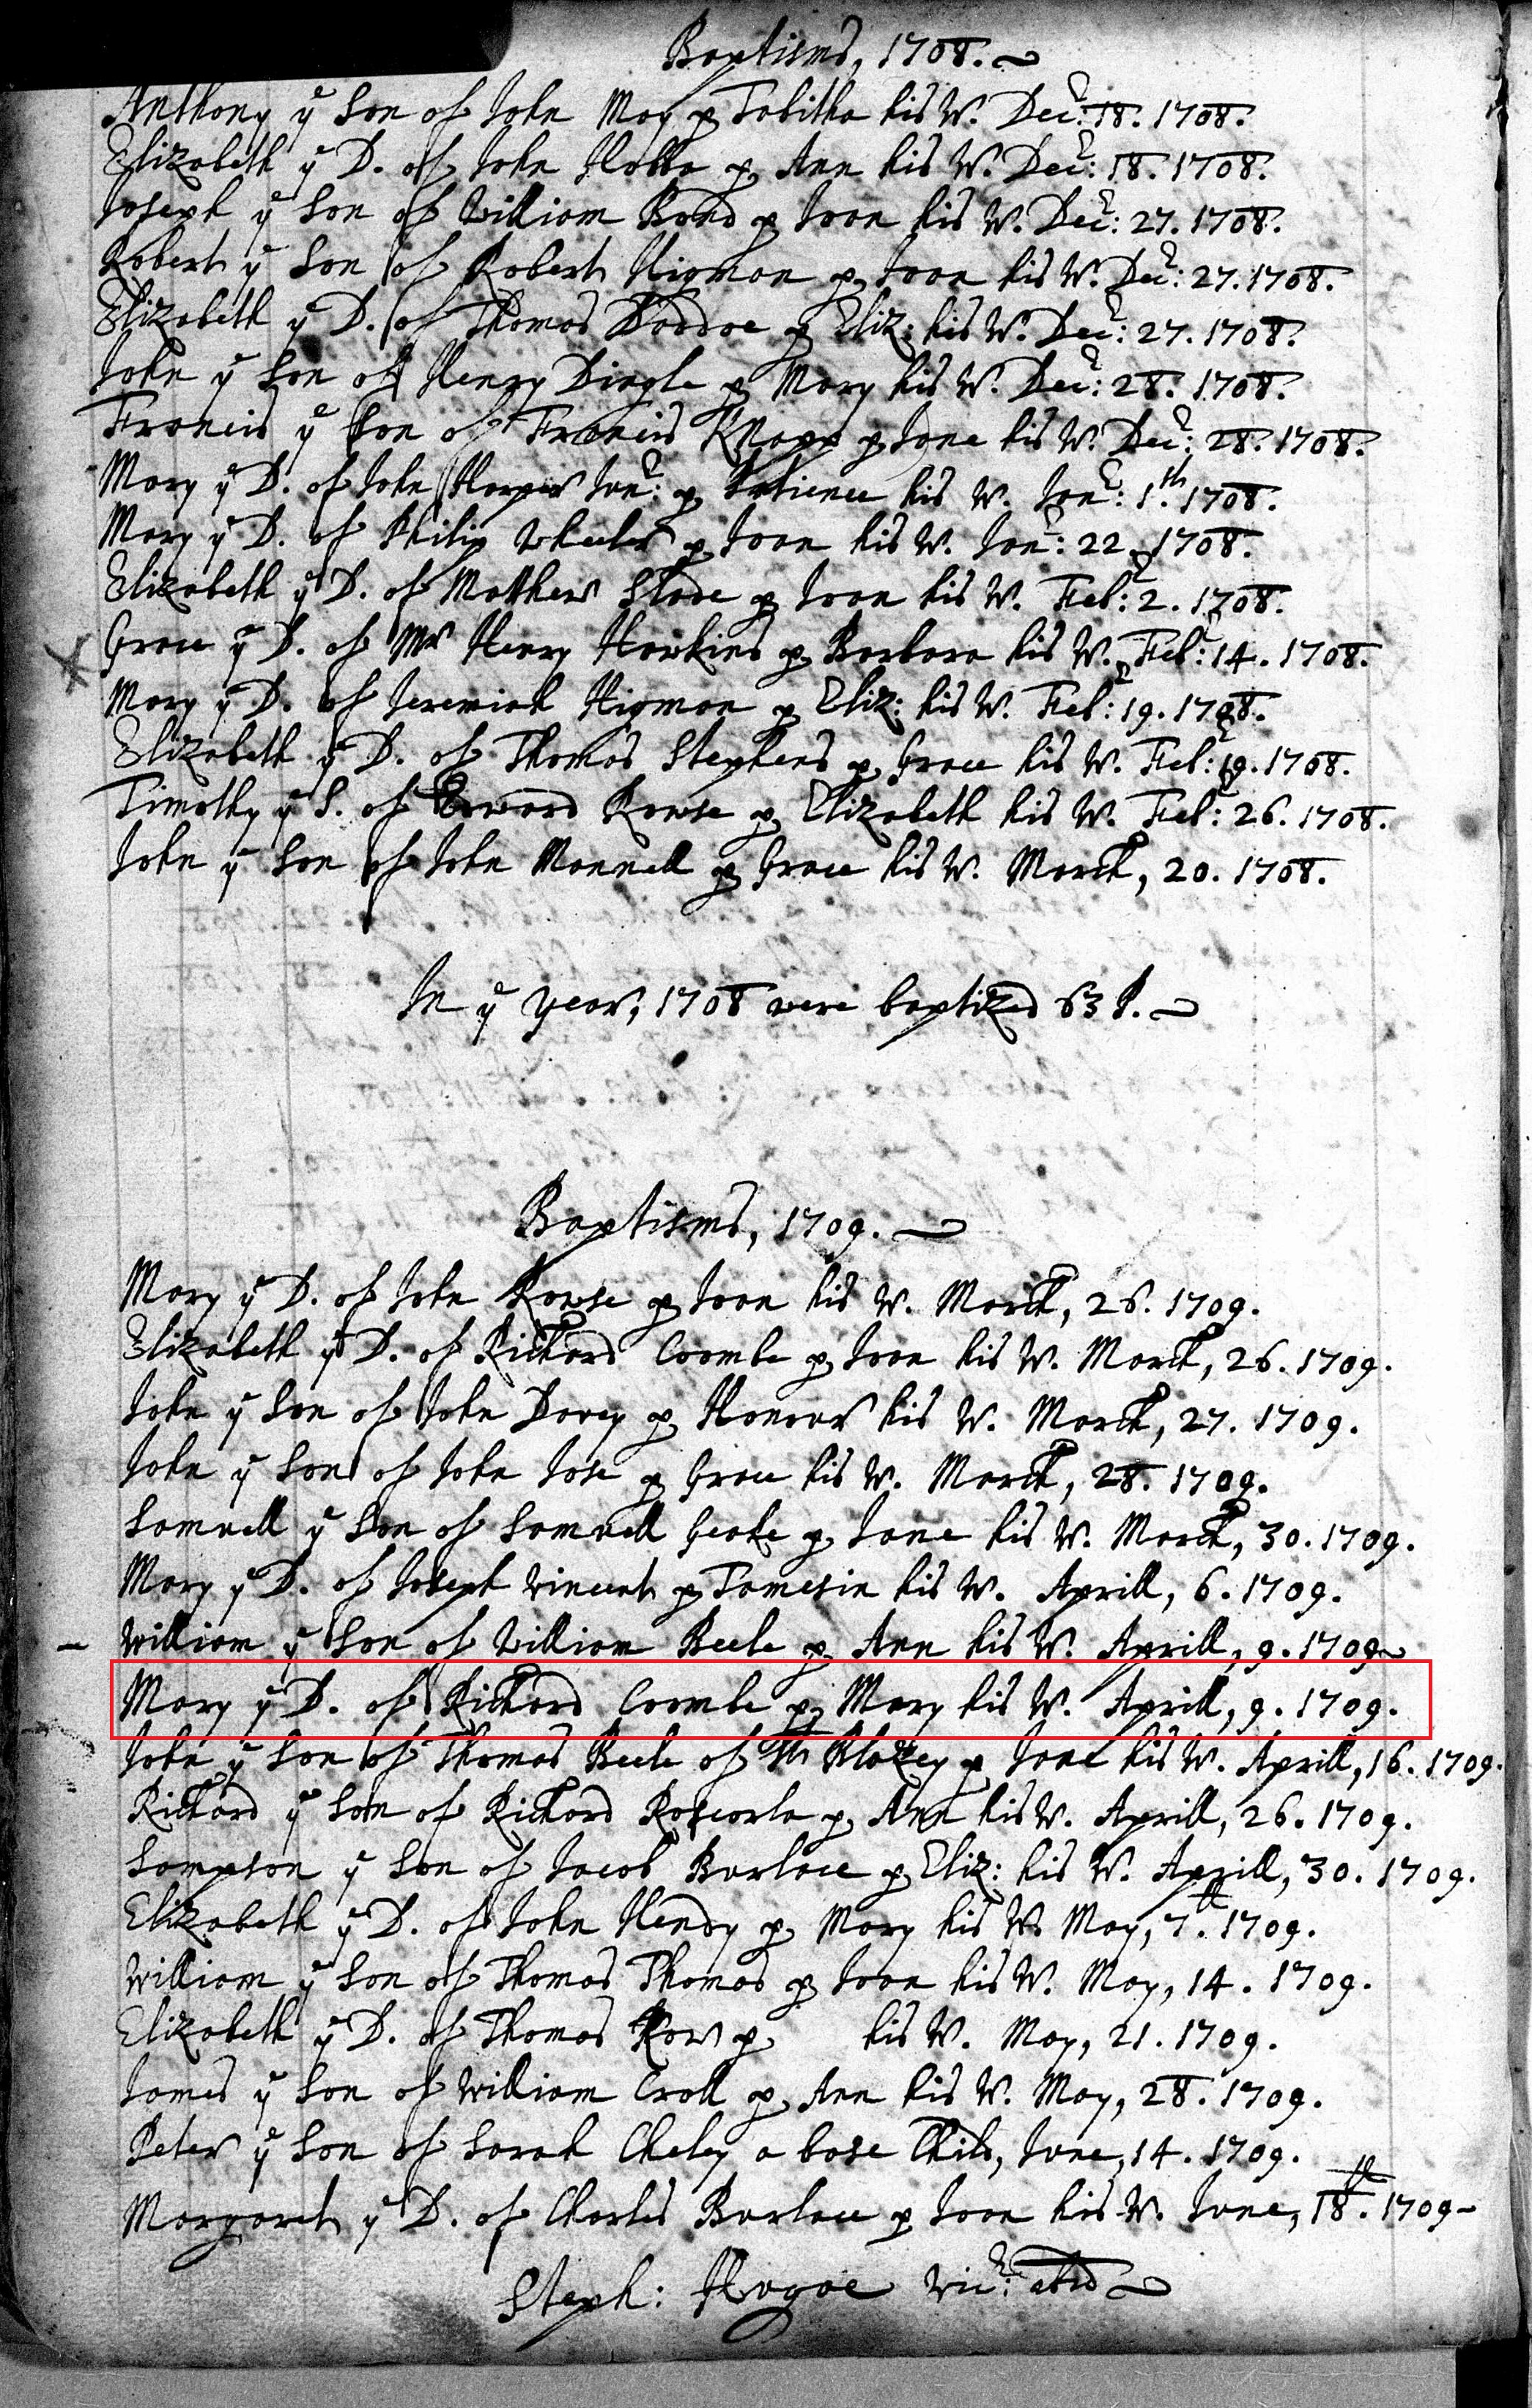 Baptisms, 1708.
Anthony yͤ Son of John May p Tabitha his W. Decr: 18. 1708.
Elizabeth yͤ D. of John Hobba p Ann his W. Decr: 18. 1708.
Joseph yͤ Son of William Bond p Joan his W. Decr: 27. 1708.
Robert yͤ Son of Robert Higman p Joan his W. Decr: 27. 1708.
Elizabeth yͤ D. of Thomas p Eliz: his W. Decr: 27. 1708.
John yͤ Son of Henry Dingle p Mary his W. Decr: 28. 1708.
Francis yͤ Son of Francis Knapp p Jane his W. Decr: 28. 1708.
Mary yͤ D. of John Harper Junr: p Patience his W. Janr: 1.th 1708.
Mary yͤ D. of Philip Wheeler p Joan his W. Janr: 22. 1708.
Elizabeth yͤ D. of Mathew Slade p Joan his W. Febr: 2. 1708.
Grace yͤ D. of Mr Henry Hawkins p Barbara his W. Febr: 14. 1708.
Mary yͤ D. of Jeremiah Higman p Eliz: his W. Febr: 19. 1708.
Elizabeth yͤ D. of Thomas Stephens p Grace his W. Febr: 19. 1708.
Timothy yͤ S. of Edward Rowse p Elizabeth his W. Febr: 26. 1708.
John yͤ Son of John Mannell p Grace his W. March, 20. 1708.
In yͤ year, 1708 were baptized 63 P.
Baptisms, 1709.
Mary yͤ D. of John Rowse p Joan his W. March, 26. 1709.
Elizabeth yͤ D. of Richard Coombe p Joan his W. March, 26. 1709.
John yͤ Son of John Davey p Honour his W. March, 27. 1709.
John yͤ Son of John Jose p Grace his W. March, 28. 1709.
Samuell yͤ Son of Samuell Geake p Jane his W. March, 30. 1709.
Mary yͤ D. of Joseph Vincent p Tamesin his W. Aprill, 6. 1709.
William yͤ Son of William Beele p Ann his W. Aprill, 9. 1709
Mary yͤ D. of Richard Coombe p Mary his W. Aprill, 9. 1709.
John yͤ Son of Thomas Beele of St Blazey p Jane his W. Aprill, 16. 1709.
Richard yͤ Son of Richard Roscorla p Ann his W. Aprill, 26. 1709.
Sampson yͤ Son of Jacob Burlace p Eliz: his W. Aprill, 30. 1709.
Elizabeth yͤ D. of John Hendy p Mary his W. May, 7.th 1709.
William yͤ Son of Thomas Thomas p Joan his W. May, 14. 1709.
Elizabeth yͤ D. of Thomas Row p his W. May, 21. 1709.
James yͤ Son of William Croll p Ann his W. May, 28. 1709.
Peter yͤ Son of Sarah Cheley a base Child, June, 14. 1709.
Margaret yͤ D. of Charles Burlace p Joan his W. June, 18.th 1709
Steph: Hugoe Vicr: ibid